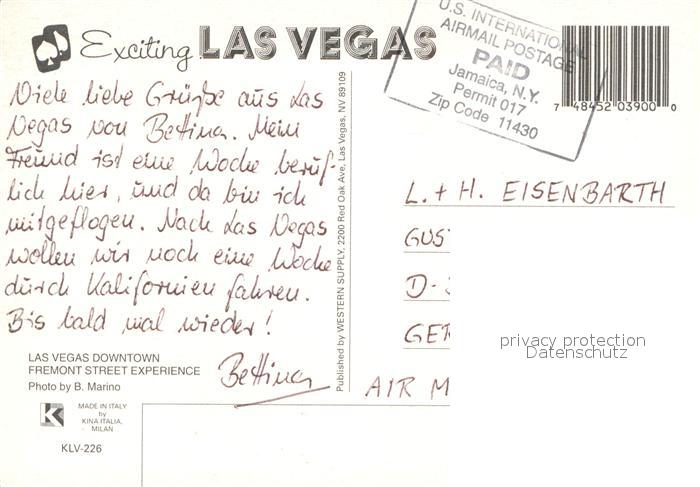 Exciting LAS VEGAS
Viele liebe Grüße aus Las
Vegas von Bettina. Mein
Freund ist eine Woche beruf-
lich hier, und da bin ich
mitgeflogen. Nach Las Vegas
wollen wir noch eine Woche
durch Kalifornien fahren.
Bis bald mal wieder!
Bettina
LAS VEGAS DOWNTOWN
FREMONT STREET EXPERIENCE
Photo by B. Marino
K
MADE IN ITALY
by
KINA ITALIA.
MILAN
KLV-226
Published by WESTERN SUPPLY, 2200 Red Oak Ave, Las Vegas, NV 89109
U.S. INTERNATIONAL
AIRMAIL POSTAGE
PAID
Jamaica, N.Y.
Permit 017
Zip Code 11430
7 48452 03900 0
L. + H. EISENBARTH
GUS
D-
GER
AIR M
privacy protection
Datenschutz